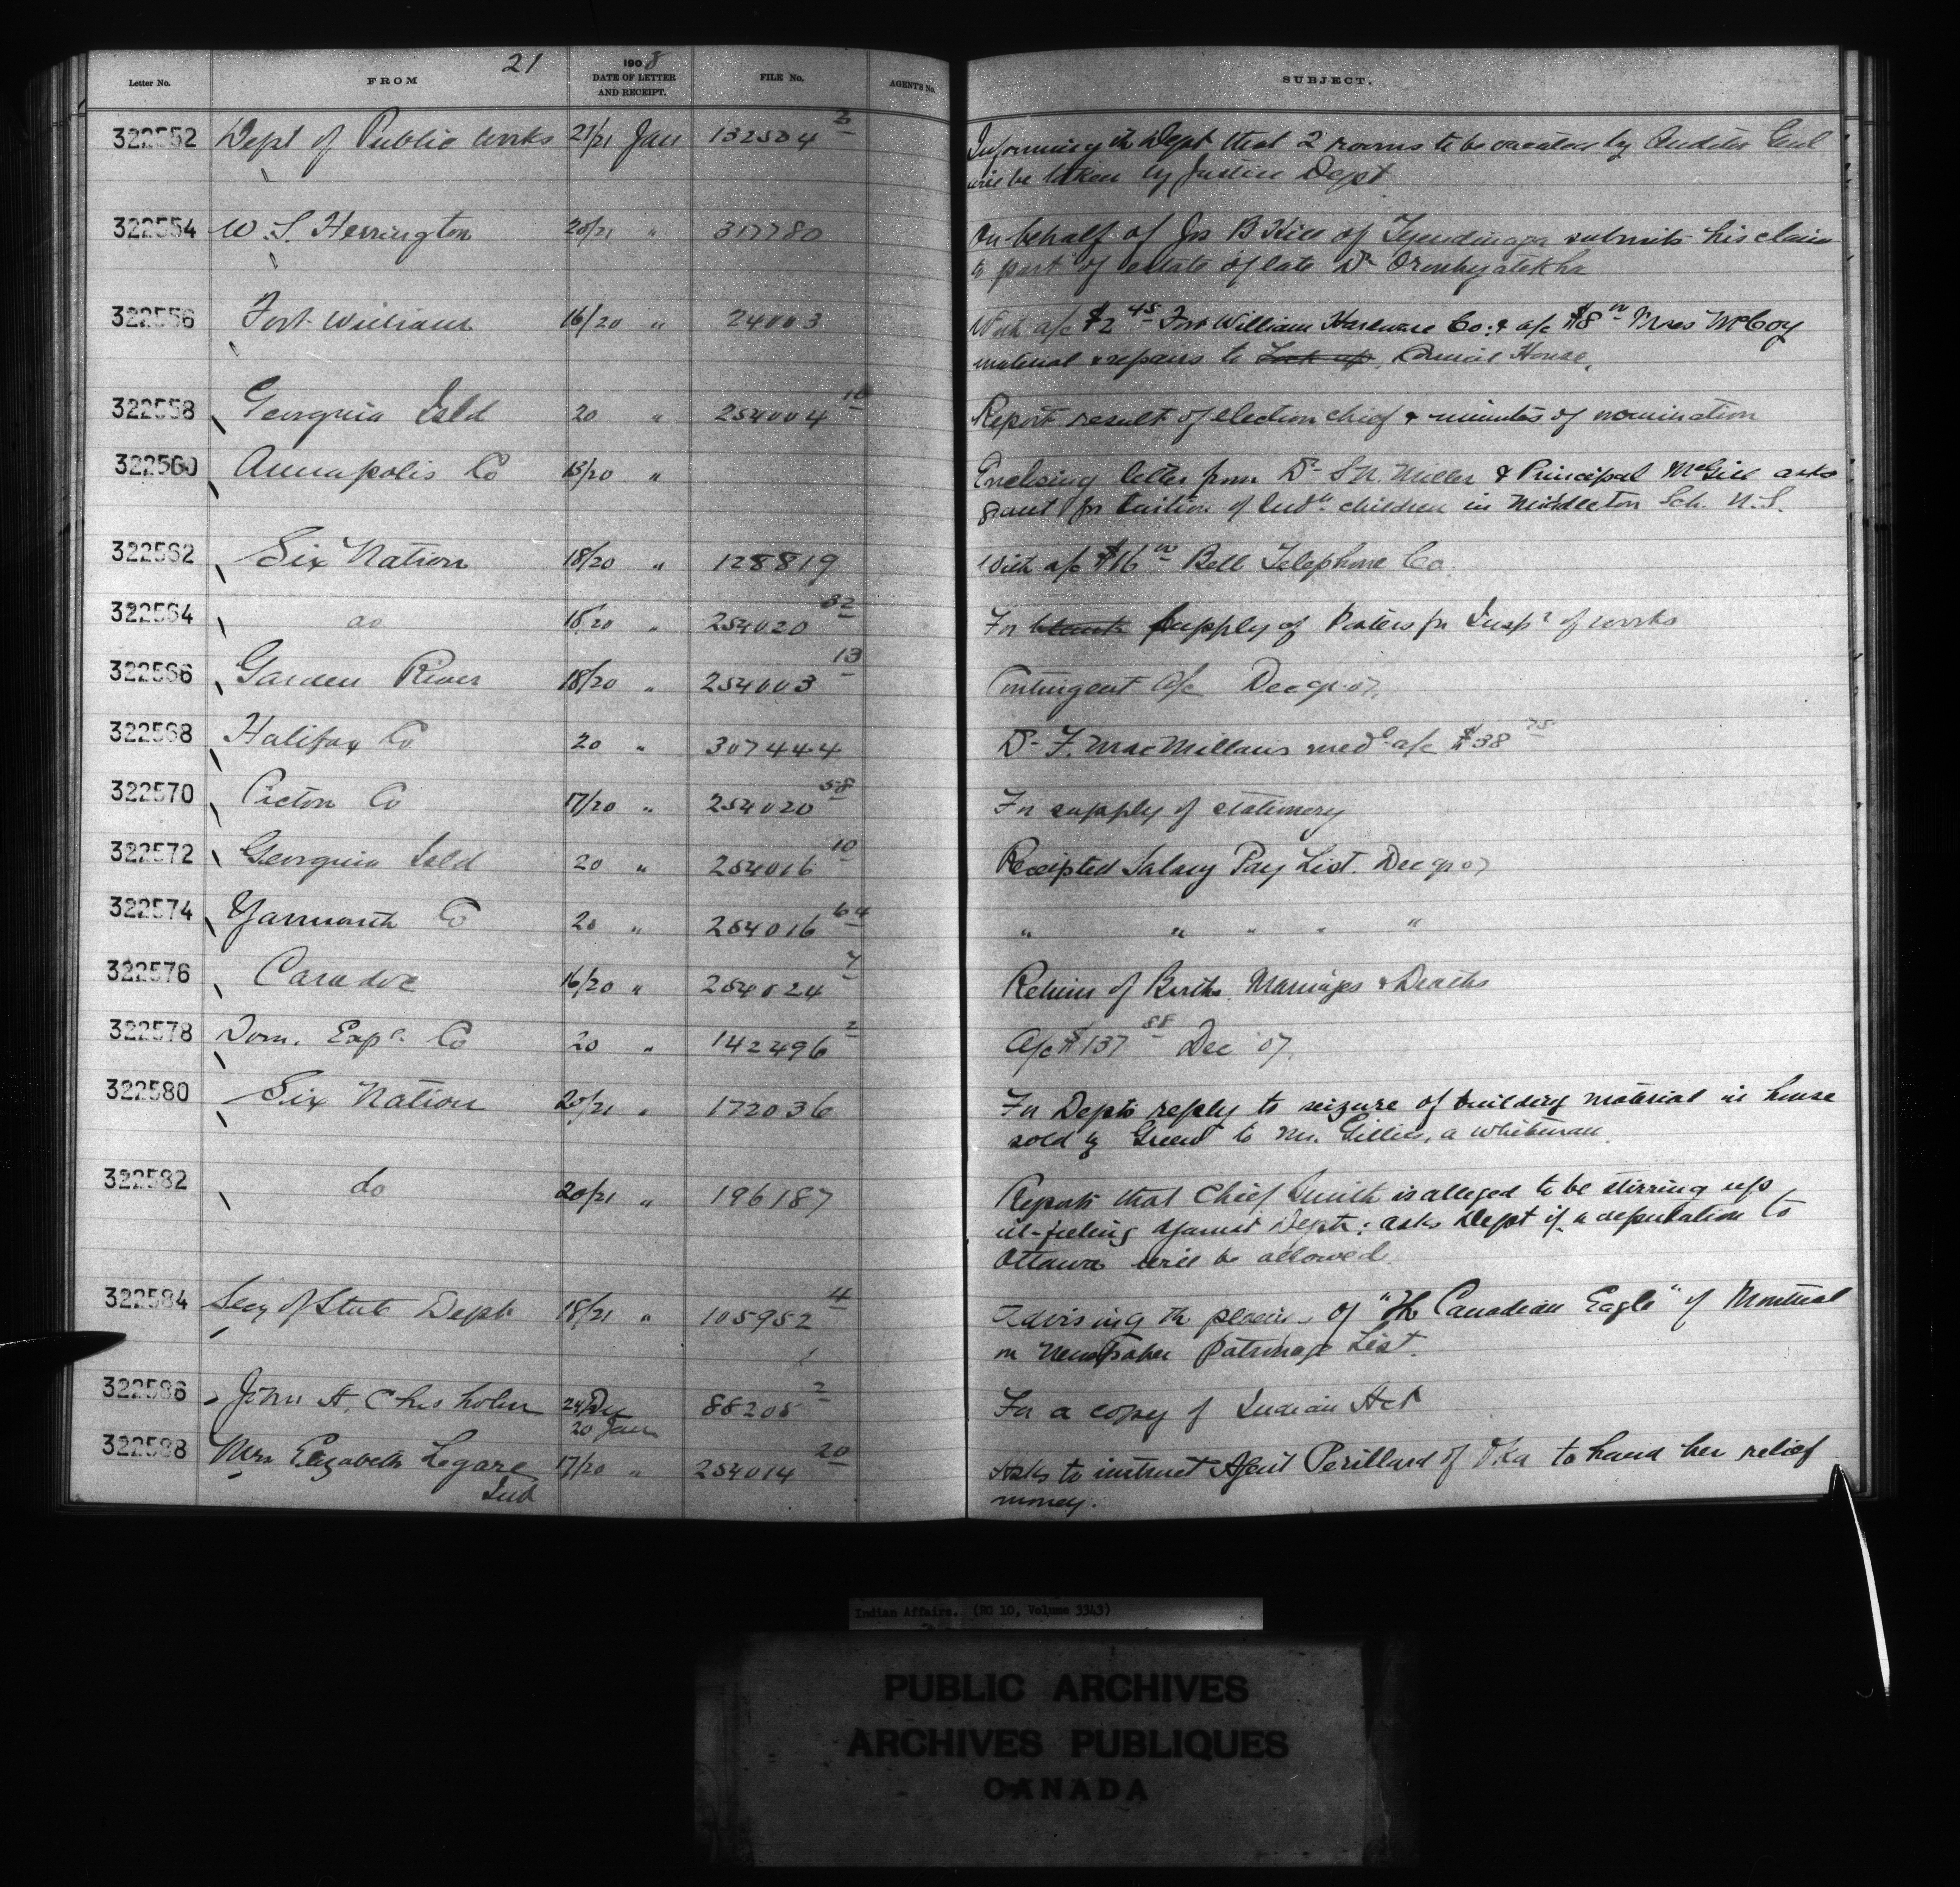 21
Letter No. FROM 1908 DATE OF LETTER AND RECEIPT. FILE No. AGENT'S No. SUBJECT.
322552 Dept of Public Works 21/21 Jan 132534 2 Informing the Dept that 2 rooms to be vacated by Auditor Genl
will be taken by Justice Dept
322554 W. S. Herrington 20/21 " 317780 On behalf of Jos B Hill of Tyendinaga submits his claim
to part of estate of late Dr Oronhyatekha
322556 Fort William 16/20 " 24003 With a/c $2 45 Fort William Hardware Co: & a/c $8 00 McCoy
material & repairs to Lock up, Council House,
322558 Georgina Isld 20 " 254004 10 Report result of election chief & minutes of nomination
322560 Annapolis Co 13/20 " Enclosing letter from Dr S.N. Miller & Principal McGill asks
grant for tuition of Indn children in Middleton Sch. N.S.
322562 Six Nation 18/20 " 128819 With a/c $16 00 Bell Telephone Co.
322564 do 18/20 " 254020 32 For supply of Posters for Inspr of works
322566 Garden River 18/20 " 254003 13 Contingent a/c Dec qr. 07.
322568 Halifax Co 20 " 307444 Dr F. MacMillan's medl a/c $38 75
322570 Pictou Co 17/20 " 254020 58 For supply of stationery
322572 Georgina Isld 20 " 254016 10 Receipted Salary Pay List. Dec qr 07
322574 Yarmouth Co 20 " 254016 64 " " " " "
322576 Caradoc 16/20 " 254024 7 Return of Births, Marriages & Deaths
322578 Dom. Exp. Co 20 " 142496 2 A/c $137 88 Dec 07.
322580 Six Nation 20/21 " 172036 For Depts reply to seizure of building material in house
sold by Green to Mr. Gillies, a whiteman.
322582 do 20/21 " 196187 Reports that Chief Smith is alleged to be stirring up
ill-feeling against Dept: asks Dept if a deputation to
Ottawa will be allowed.
322584 Secy of State Dept 18/21 " 105952 4 Advising the placing of "The Canadian Eagle" of Montreal
on Newspaper Patronage List.
322586 John A. Chisholm 24 Dec 20 Jan 88205 2 For a copy of Indian Act
322588 Mrs Elizabeth Legare 17/20 " 254014 20 Asks to instruct Agent Perillard of Oka to hand her relief
Ind money.
Indian Affairs. (RG 10, Volume 3343)
PUBLIC ARCHIVES
ARCHIVES PUBLIQUES
CANADA